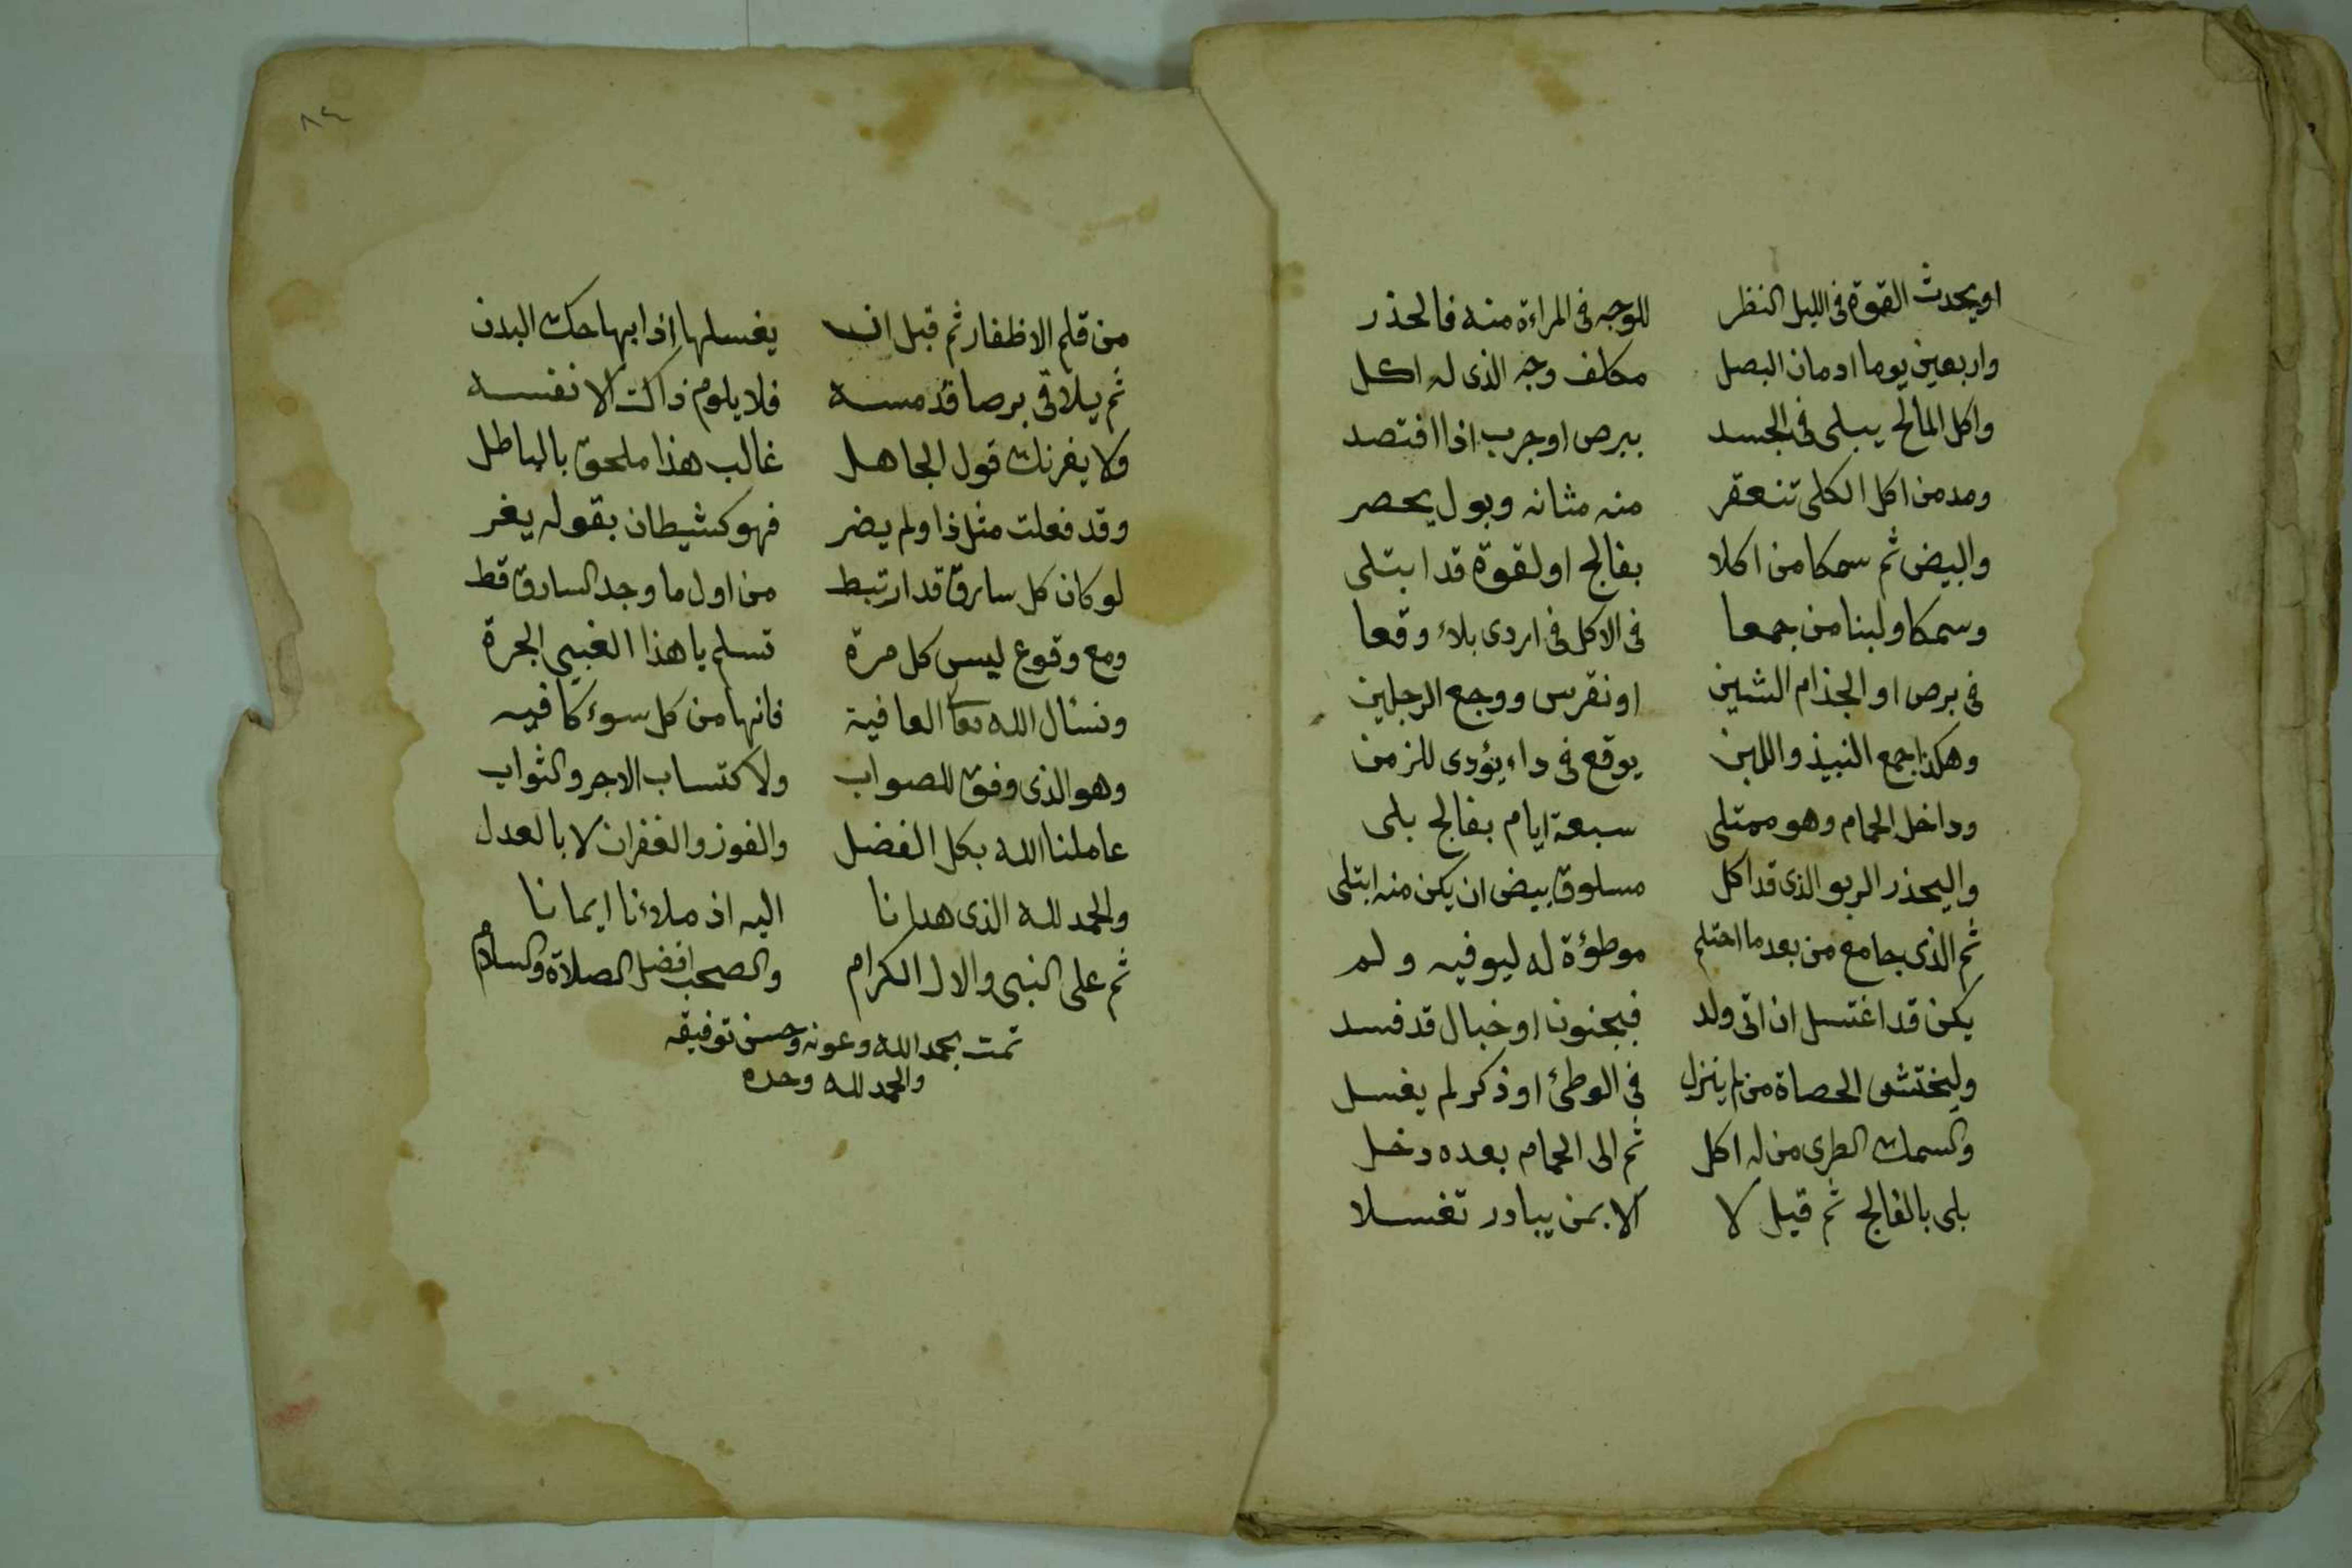 او يحدث القوة فى الليل النظر للوجه فى المراءة منه فالحذر
واربعين يوما ادمان البصل مكلف وجه الذى له اكل
واكل المالح يبلى فى الجسد ببرص او جرب اذا افتصد
ومد من اكل الكلى تنعقر منه مثانه وبول يحصر
والبيض ثم سمكا من اكلا بفالج او لقوة قد ابتلى
وسمكا ولبنا من جمعا فى الاكل فى اردى بلاء وقعا
فى برص او الجذام الشين او نقرس ووجع الرجلين
وهكذا جمع النبيذ واللبن يوقع فى داء يؤدى للزمن
وداخل الحمام وهو ممتلى سبعة ايام بفالج بلى
واليحذر الربو الذى قد اكل مسلوق بيض ان يكن منه ابتلى
ثم الذى يجامع من بعد ما احتلم موطؤة له ليوفيه ولم
يكن قد اغتسل ان اتى ولد فبجنون او خبال قد فسد
وليختشى الحصاة من لم ينزل فى الوطئ او ذكر لم يغسل
والسمك الطرى من له اكل ثم الى الحمام بعده دخل
بلى بالفالج ثم قيل لا الا بمن يبادر تغسلا
٨٤
من قلم الاظفار ثم قبل ان يغسلها اذا بها حك البدن
ثم يلاقى برصا قد مسه فلا يلوم ذاك الا نفسه
ولا يغرنك قول الجاهل غالب هذا ملحق بالباطل
وقد فعلت مثل ذا ولم يضر فهو كشيطان بقوله يغر
لو كان كل سارق قد ارتبط من اول ما وجد السارق قط
ومع وقوع ليس كل مرة تسلم يا هذا الغبى الجرة
ونسئال الله تعا العافية فانها من كل سوء كافيه
وهو الذى وفق للصواب ولاكتساب الاجر والثواب
عاملنا الله بكل الفضل والفوز والغفران لا بالعدل
والحمد لله الذى هدانا اليه اذ ملاءنا ايمانا
ثم على النبى والال الكرام والصحب افضل الصلاة والسلام
تمت بحمد الله وعونه وحسن توفيقه
والحمد لله وحده